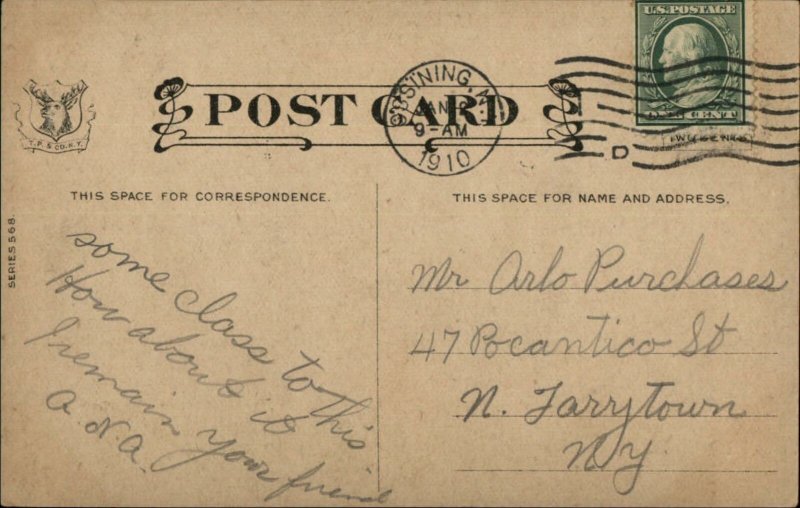 POST CARD
OSSINING, N.Y.
JAN
9-AM
1910
U.S. POSTAGE
ONE CENT
D
T. P. & CO. N.Y.
THIS SPACE FOR CORRESPONDENCE.
THIS SPACE FOR NAME AND ADDRESS.
SERIES 568.
some class to this
How about it
I remain your friend
A. N. A.
Mr Arlo Purchases
47 Pocantico St
N. Tarrytown
NY